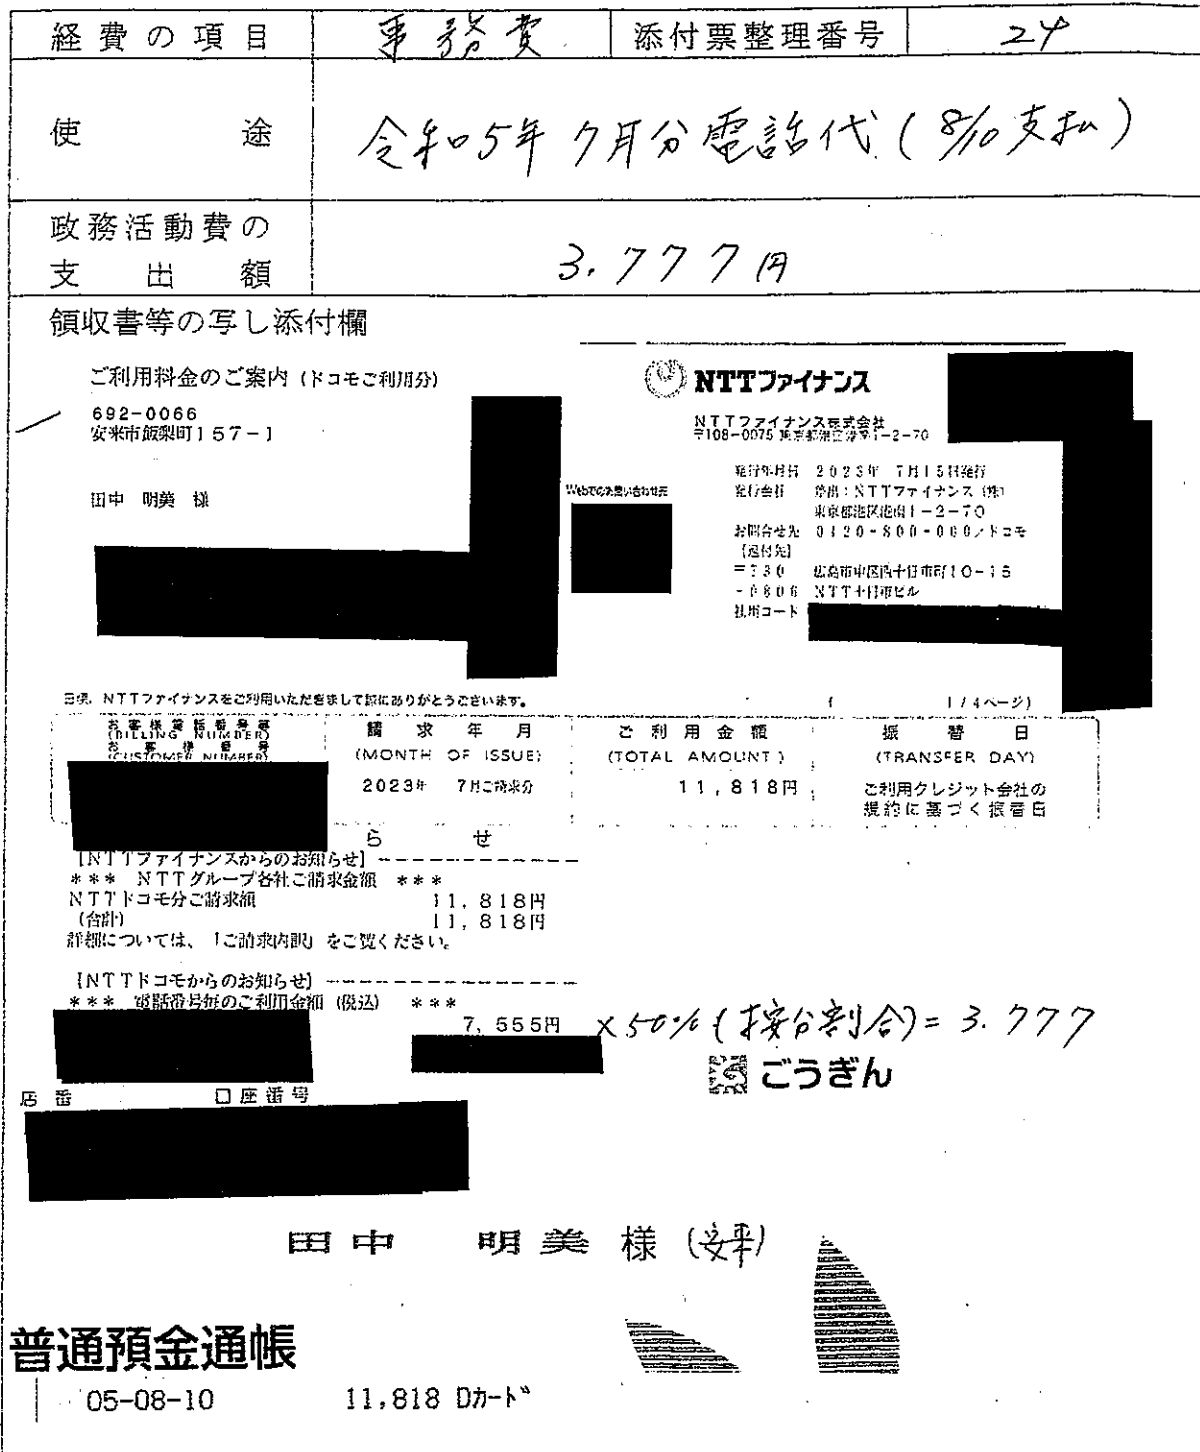 経費の項目 事務費 添付票整理番号 24
使途 令和5年7月分電話代(8/10支払)
政務活動費の
支出額 3.777円
領収書等の写し添付欄
ご利用料金のご案内 (ドコモご利用分)
692-0066
安来市飯梨町157-1
田中 明美 様
NTTファイナンス
NTTファイナンス株式会社
〒108-0075 東京都港区港南1-2-70
Webでのお問い合わせ先
発行年月日 2023年 7月15日発行
発行会社 差出:NTTファイナンス (株)
東京都港区港南1-2-70
お問合せ先 0120-800-000/ドコモ
[送付先]
〒730 広島市中区西十日市町10-15
-0806 NTT十日市ビル
日頃、NTTファイナンスをご利用いただきまして誠にありがとうございます。
( 1/4ページ)
お客様電話番号等
(BILLING NUMBER)
お客様番号
(CUSTOMER NUMBER)
請求年月
(MONTH OF ISSUE)
2023年 7月ご請求分
ご利用金額
(TOTAL AMOUNT)
11,818円
振替日
(TRANSFER DAY)
ご利用クレジット会社の
規約に基づく振替日
らせ
[NTTファイナンスからのお知らせ]-------------
*** NTTグループ各社ご請求金額 ***
NTTドコモ分ご請求額 11,818円
(合計) 11,818円
詳細については、「ご請求内訳」をご覧ください。
[NTTドコモからのお知らせ]----------------
*** 電話番号毎のご利用金額 (税込) ***
7,555円 ×50%(按分割合)=3.777
ごうぎん
店番 口座番号
田中 明美 様 (安来)
普通預金通帳
05-08-10 11,818 Dカード